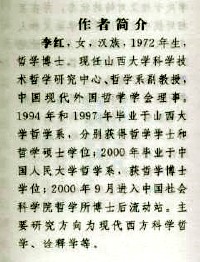 作者简介
李红，女，汉族，1972年生，
哲学博士。现任山西大学科学技
术哲学研究中心、哲学系副教授，
中国现代外国哲学学会理事。
1994年和1997年毕业于山西大
学哲学系，分别获得哲学学士和
哲学硕士学位；2000年毕业于中
国人民大学哲学系，获哲学博士
学位；2000年9月进入中国社会
科学院哲学所博士后流动站。主
要研究方向为现代西方科学哲
学、诠释学等。